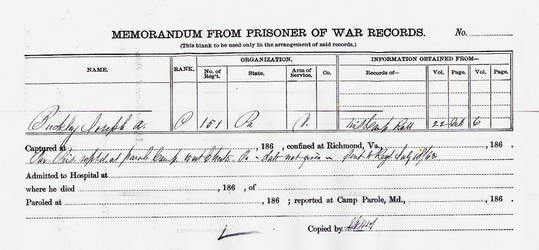 MEMORANDUM FROM PRISONER OF WAR RECORDS. No.
(This blank to be used only in the arrangement of said records.)
NAME. RANK. ORGANIZATION. INFORMATION OBTAINED FROM—
No. of Reg't. State. Arm of Service. Co. Records of— Vol. Page. Vol. Page.
Buckley Joseph A. P 151 Pa 22 6
Captured at , 186 , confined at Richmond, Va., , 186 .
Par. Pris. at Parole Camp West Chester Pa — date not given — Sent to Regt July
Admitted to Hospital at
where he died , 186 , of
Paroled at , 186 ; reported at Camp Parole, Md., , 186 .
Copied by